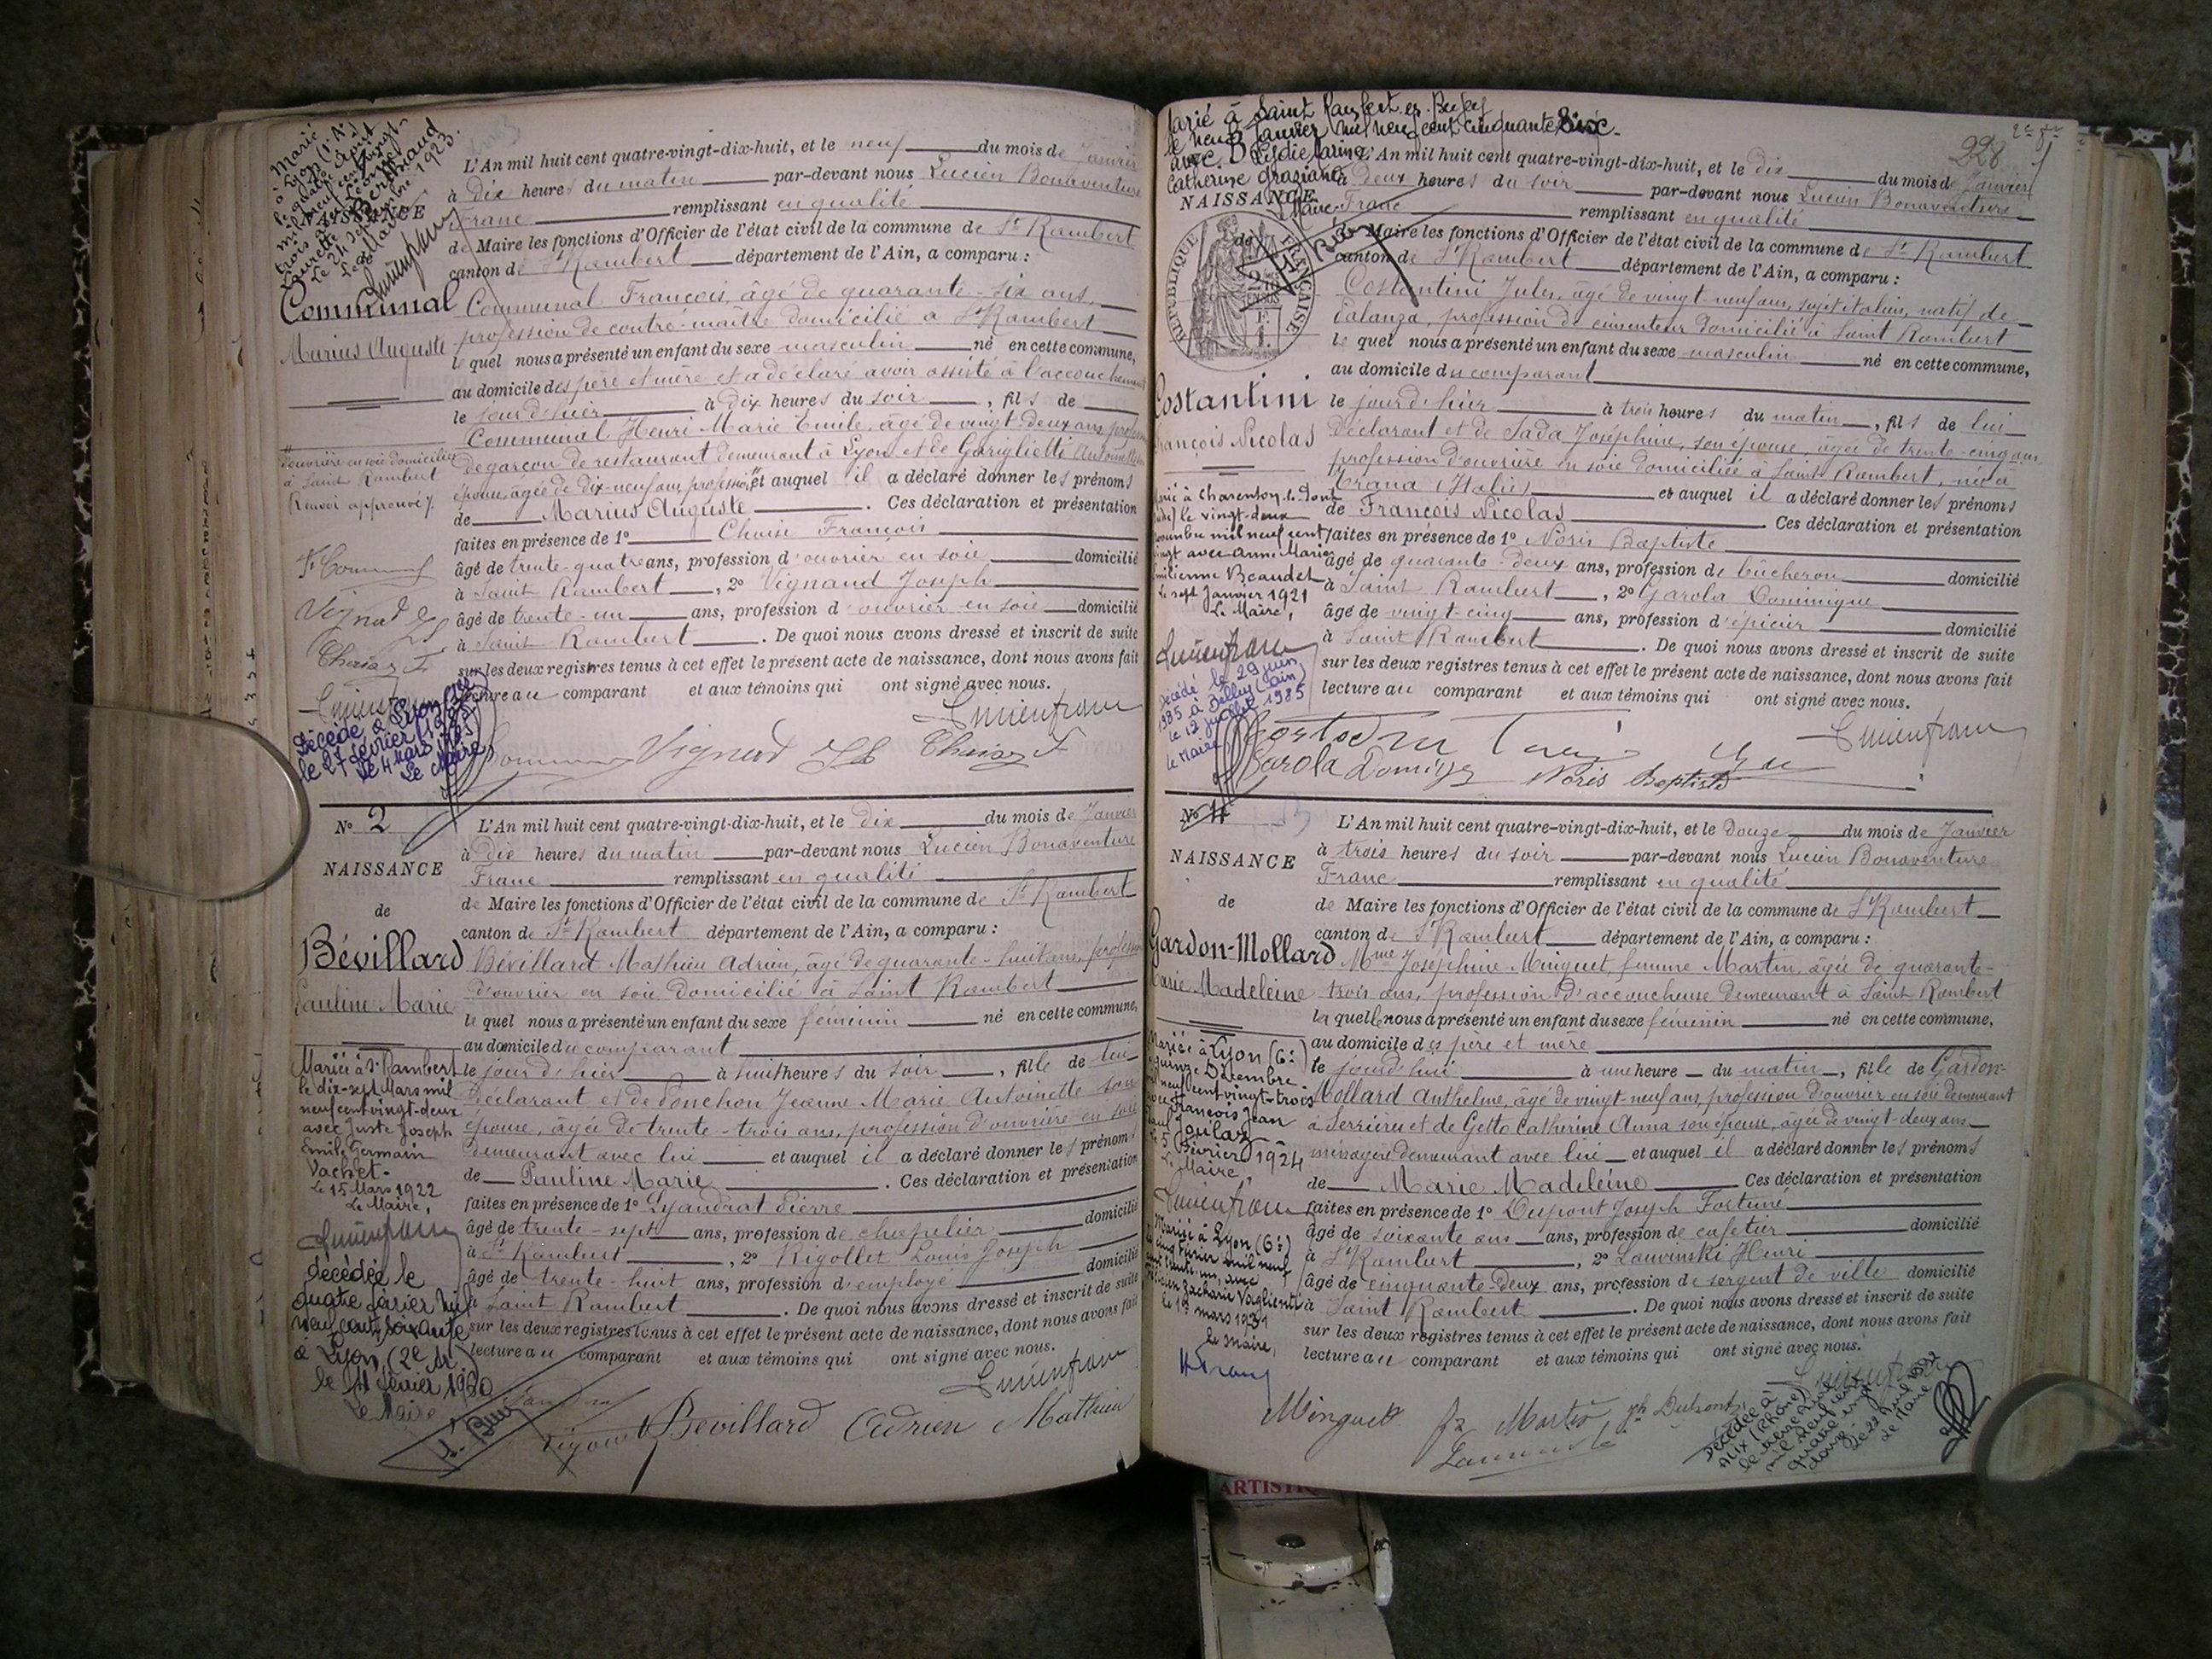 Marié
à Lyon
NAISSANCE
L'An mil huit cent quatre-vingt-dix-huit, et le neuf du mois de Janvier
à dix heures du matin par-devant nous Lucien Bonaventure
Franc remplissant en qualité
de Maire les fonctions d'Officier de l'état civil de la commune de St Rambert
canton de St Rambert département de l'Ain, a comparu :
Communal
Marius Auguste
Communal François, âgé de quarante-six ans,
profession de contre-maître domicilié à St Rambert
le quel nous a présenté un enfant du sexe masculin né en cette commune,
au domicile des père et mère et a déclaré avoir assisté à l'accouchement
le jour d'hier à dix heures du soir, fils de
Communal Henri Marie Emile, âgé de vingt-deux ans
de garçon de restaurant demeurant à Lyon et de Garigliotti
épouse, âgée de dix-neuf ans, profession et auquel il a déclaré donner les prénoms
de Marius Auguste. Ces déclaration et présentation
faites en présence de 1º François
âgé de trente-quatre ans, profession d'ouvrier en soie domicilié
à Saint Rambert, 2º Vignand Joseph
âgé de trente-un ans, profession d'ouvrier en soie domicilié
à Saint Rambert. De quoi nous avons dressé et inscrit de suite
sur les deux registres tenus à cet effet le présent acte de naissance, dont nous avons fait
lecture au comparant et aux témoins qui ont signé avec nous.
d'ouvrière en soie domiciliée
à Saint Rambert
Renvoi approuvé
Décédé à Lyon
le 27 février 1985
le 4 mars 1985
Le Maire
Nº 2
NAISSANCE
de
Bévillard
Pauline Marie
L'An mil huit cent quatre-vingt-dix-huit, et le dix du mois de Janvier
à dix heures du matin par-devant nous Lucien Bonaventure
Franc remplissant en qualité
de Maire les fonctions d'Officier de l'état civil de la commune de St Rambert
canton de St Rambert département de l'Ain, a comparu :
Bévillard Mathieu Adrien, âgé de quarante-huit ans, profession
d'ouvrier en soie domicilié à Saint Rambert
le quel nous a présenté un enfant du sexe féminin né en cette commune,
au domicile du comparant
le jour d'hier à huit heures du soir, fille de lui
déclarant et de Ponchon Jeanne Marie Antoinette son
épouse, âgée de trente-trois ans, profession d'ouvrière en soie
demeurant avec lui et auquel il a déclaré donner les prénoms
de Pauline Marie. Ces déclaration et présentation
faites en présence de 1º Lyaudrat Pierre
âgé de trente-sept ans, profession de chapelier domicilié
à St Rambert, 2º Rigollet Louis Joseph
âgé de trente-huit ans, profession d'employé domicilié
à Saint Rambert. De quoi nous avons dressé et inscrit de suite
sur les deux registres tenus à cet effet le présent acte de naissance, dont nous avons fait
lecture au comparant et aux témoins qui ont signé avec nous.
Bevillard Adrien Mathieu
Mariée à St Rambert
le dix-sept Mars mil
neuf cent vingt-deux
avec Juste Joseph
Emile Germain
Vachet.
Le 15 Mars 1922
Le Maire,
décédée le
quatre février mil
neuf cent soixante
à Lyon, (2e Ar.)
le 11 février 1960
Le Maire
228
Marié à Saint Rambert en Bugey
le neuf Janvier mil neuf cent cinquante six.
avec
Catherine Graziani
NAISSANCE
RÉPUBLIQUE FRANÇAISE
L'An mil huit cent quatre-vingt-dix-huit, et le dix du mois de Janvier
à deux heures du soir par-devant nous Lucien Bonaventure
Franc remplissant en qualité
de Maire les fonctions d'Officier de l'état civil de la commune de St Rambert
canton de St Rambert département de l'Ain, a comparu :
Costantini
François Nicolas
Costantini Jules, âgé de vingt-neuf ans, sujet italien, natif de
Calanza, profession de cimenteur domicilié à Saint Rambert
le quel nous a présenté un enfant du sexe masculin né en cette commune,
au domicile du comparant
le jour d'hier à trois heures du matin, fils de lui
déclarant et de Sada Joséphine, son épouse, âgée de trente-cinq ans
profession d'ouvrière en soie domiciliée à Saint Rambert, née à
(Italie) et auquel il a déclaré donner les prénoms
de François Nicolas. Ces déclaration et présentation
faites en présence de 1º Noris Baptiste
âgé de quarante-deux ans, profession de bûcheron domicilié
à Saint Rambert, 2º Garola Dominique
âgé de vingt-cinq ans, profession d'épicier domicilié
à Saint Rambert. De quoi nous avons dressé et inscrit de suite
sur les deux registres tenus à cet effet le présent acte de naissance, dont nous avons fait
lecture au comparant et aux témoins qui ont signé avec nous.
Garola Noris Baptiste
Marié à Charenton-le-Pont
le vingt-deux
novembre mil neuf cent
vingt avec Anne Marie
Emilienne Beaudet
Le sept Janvier 1921
Le Maire,
Décédé le 29 juin
1985 à Belley (Ain)
le 12 juillet 1985
Le Maire
Nº 4
NAISSANCE
de
Gardon-Mollard
Marie Madeleine
L'An mil huit cent quatre-vingt-dix-huit, et le Douze du mois de Janvier
à trois heures du soir par-devant nous Lucien Bonaventure
Franc remplissant en qualité
de Maire les fonctions d'Officier de l'état civil de la commune de St Rambert
canton de St Rambert département de l'Ain, a comparu :
Mme Joséphine Minguet, femme Martin, âgée de quarante-
trois ans, profession d'accoucheuse demeurant à Saint Rambert
la quelle nous a présenté un enfant du sexe féminin né en cette commune,
au domicile des père et mère
le jourd'hui à une heure du matin, fille de Gardon-
Mollard Anthelme, âgé de vingt-neuf ans, profession d'ouvrier en soie demeurant
à Serrières et de Getto Catherine Anna son épouse, âgée de vingt-deux ans
ménagère demeurant avec lui et auquel il a déclaré donner les prénoms
de Marie Madeleine Ces déclaration et présentation
faites en présence de 1º Dupont Joseph Fortuné
âgé de soixante ans ans, profession de cafetier domicilié
à St Rambert, 2º Lauvinski Henri
âgé de cinquante-deux ans, profession de sergent de ville domicilié
à Saint Rambert. De quoi nous avons dressé et inscrit de suite
sur les deux registres tenus à cet effet le présent acte de naissance, dont nous avons fait
lecture au comparant et aux témoins qui ont signé avec nous.
Minguet fe Martin
Mariée à Lyon (6e)
quinze Décembre
mil neuf cent vingt-trois
avec François Jean
Février 1924
Le Maire,
Mariée à Lyon (6e)
Zacharie Vaglienti
le 1er mars 1931
le maire,
ARTISTI